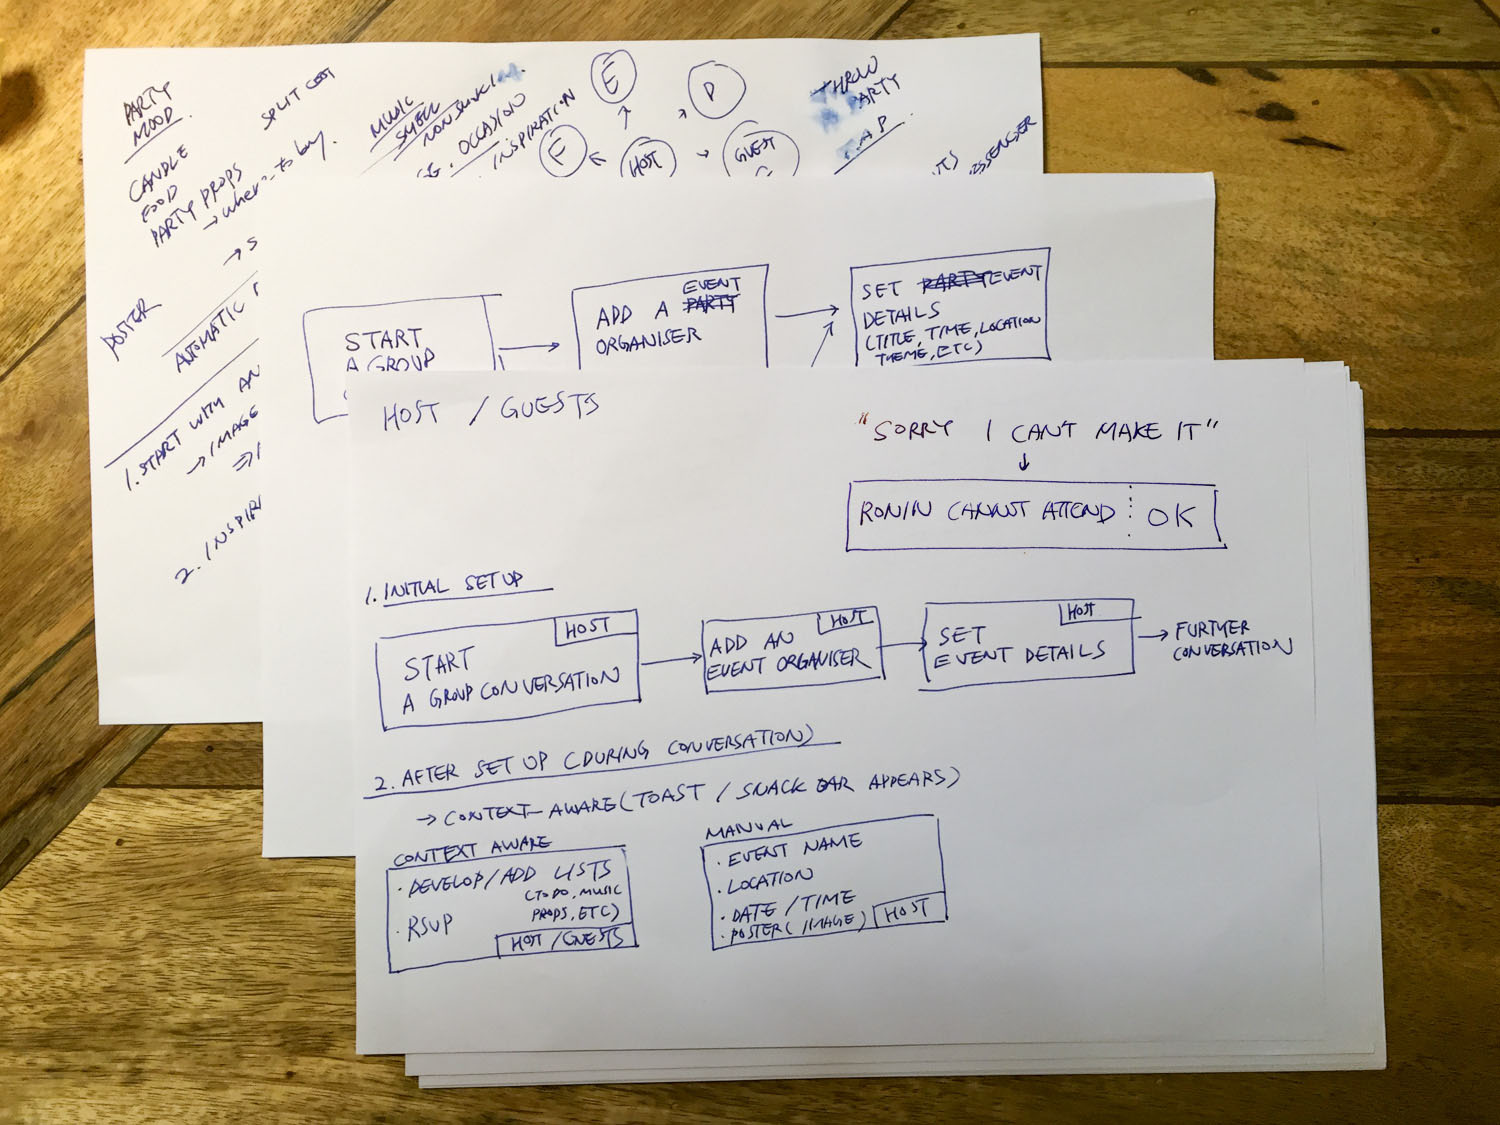 PARTY
MOOD
CANDLE
FOOD
PARTY PROPS
→ where to buy.
SPLIT COST
MUSIC
SMELL
OCCASION
INSPIRATION
E
P
F
HOST
GUEST
THROW
A PARTY
POSTER
AUTOMATIC
1. START WITH AN
→ IMAGE
2. INSPIR
START
A GROUP
ADD A PARTY EVENT
ORGANISER
SET PARTY EVENT
DETAILS
(TITLE, TIME, LOCATION
THEME, ETC)
HOST / GUESTS
"SORRY I CAN'T MAKE IT"
RONIN CANNOT ATTEND
OK
1. INITIAL SET UP
HOST
START
A GROUP CONVERSATION
HOST
ADD AN
EVENT ORGANISER
HOST
SET
EVENT DETAILS
→ FURTHER
CONVERSATION
2. AFTER SET UP (DURING CONVERSATION)
→ CONTEXT-AWARE (TOAST / SNACK BAR APPEARS)
CONTEXT AWARE
· DEVELOP/ADD LISTS
(TODO, MUSIC
PROPS, ETC)
· RSVP
HOST/GUESTS
MANUAL
· EVENT NAME
· LOCATION
· DATE/TIME
· POSTER (IMAGE)
HOST